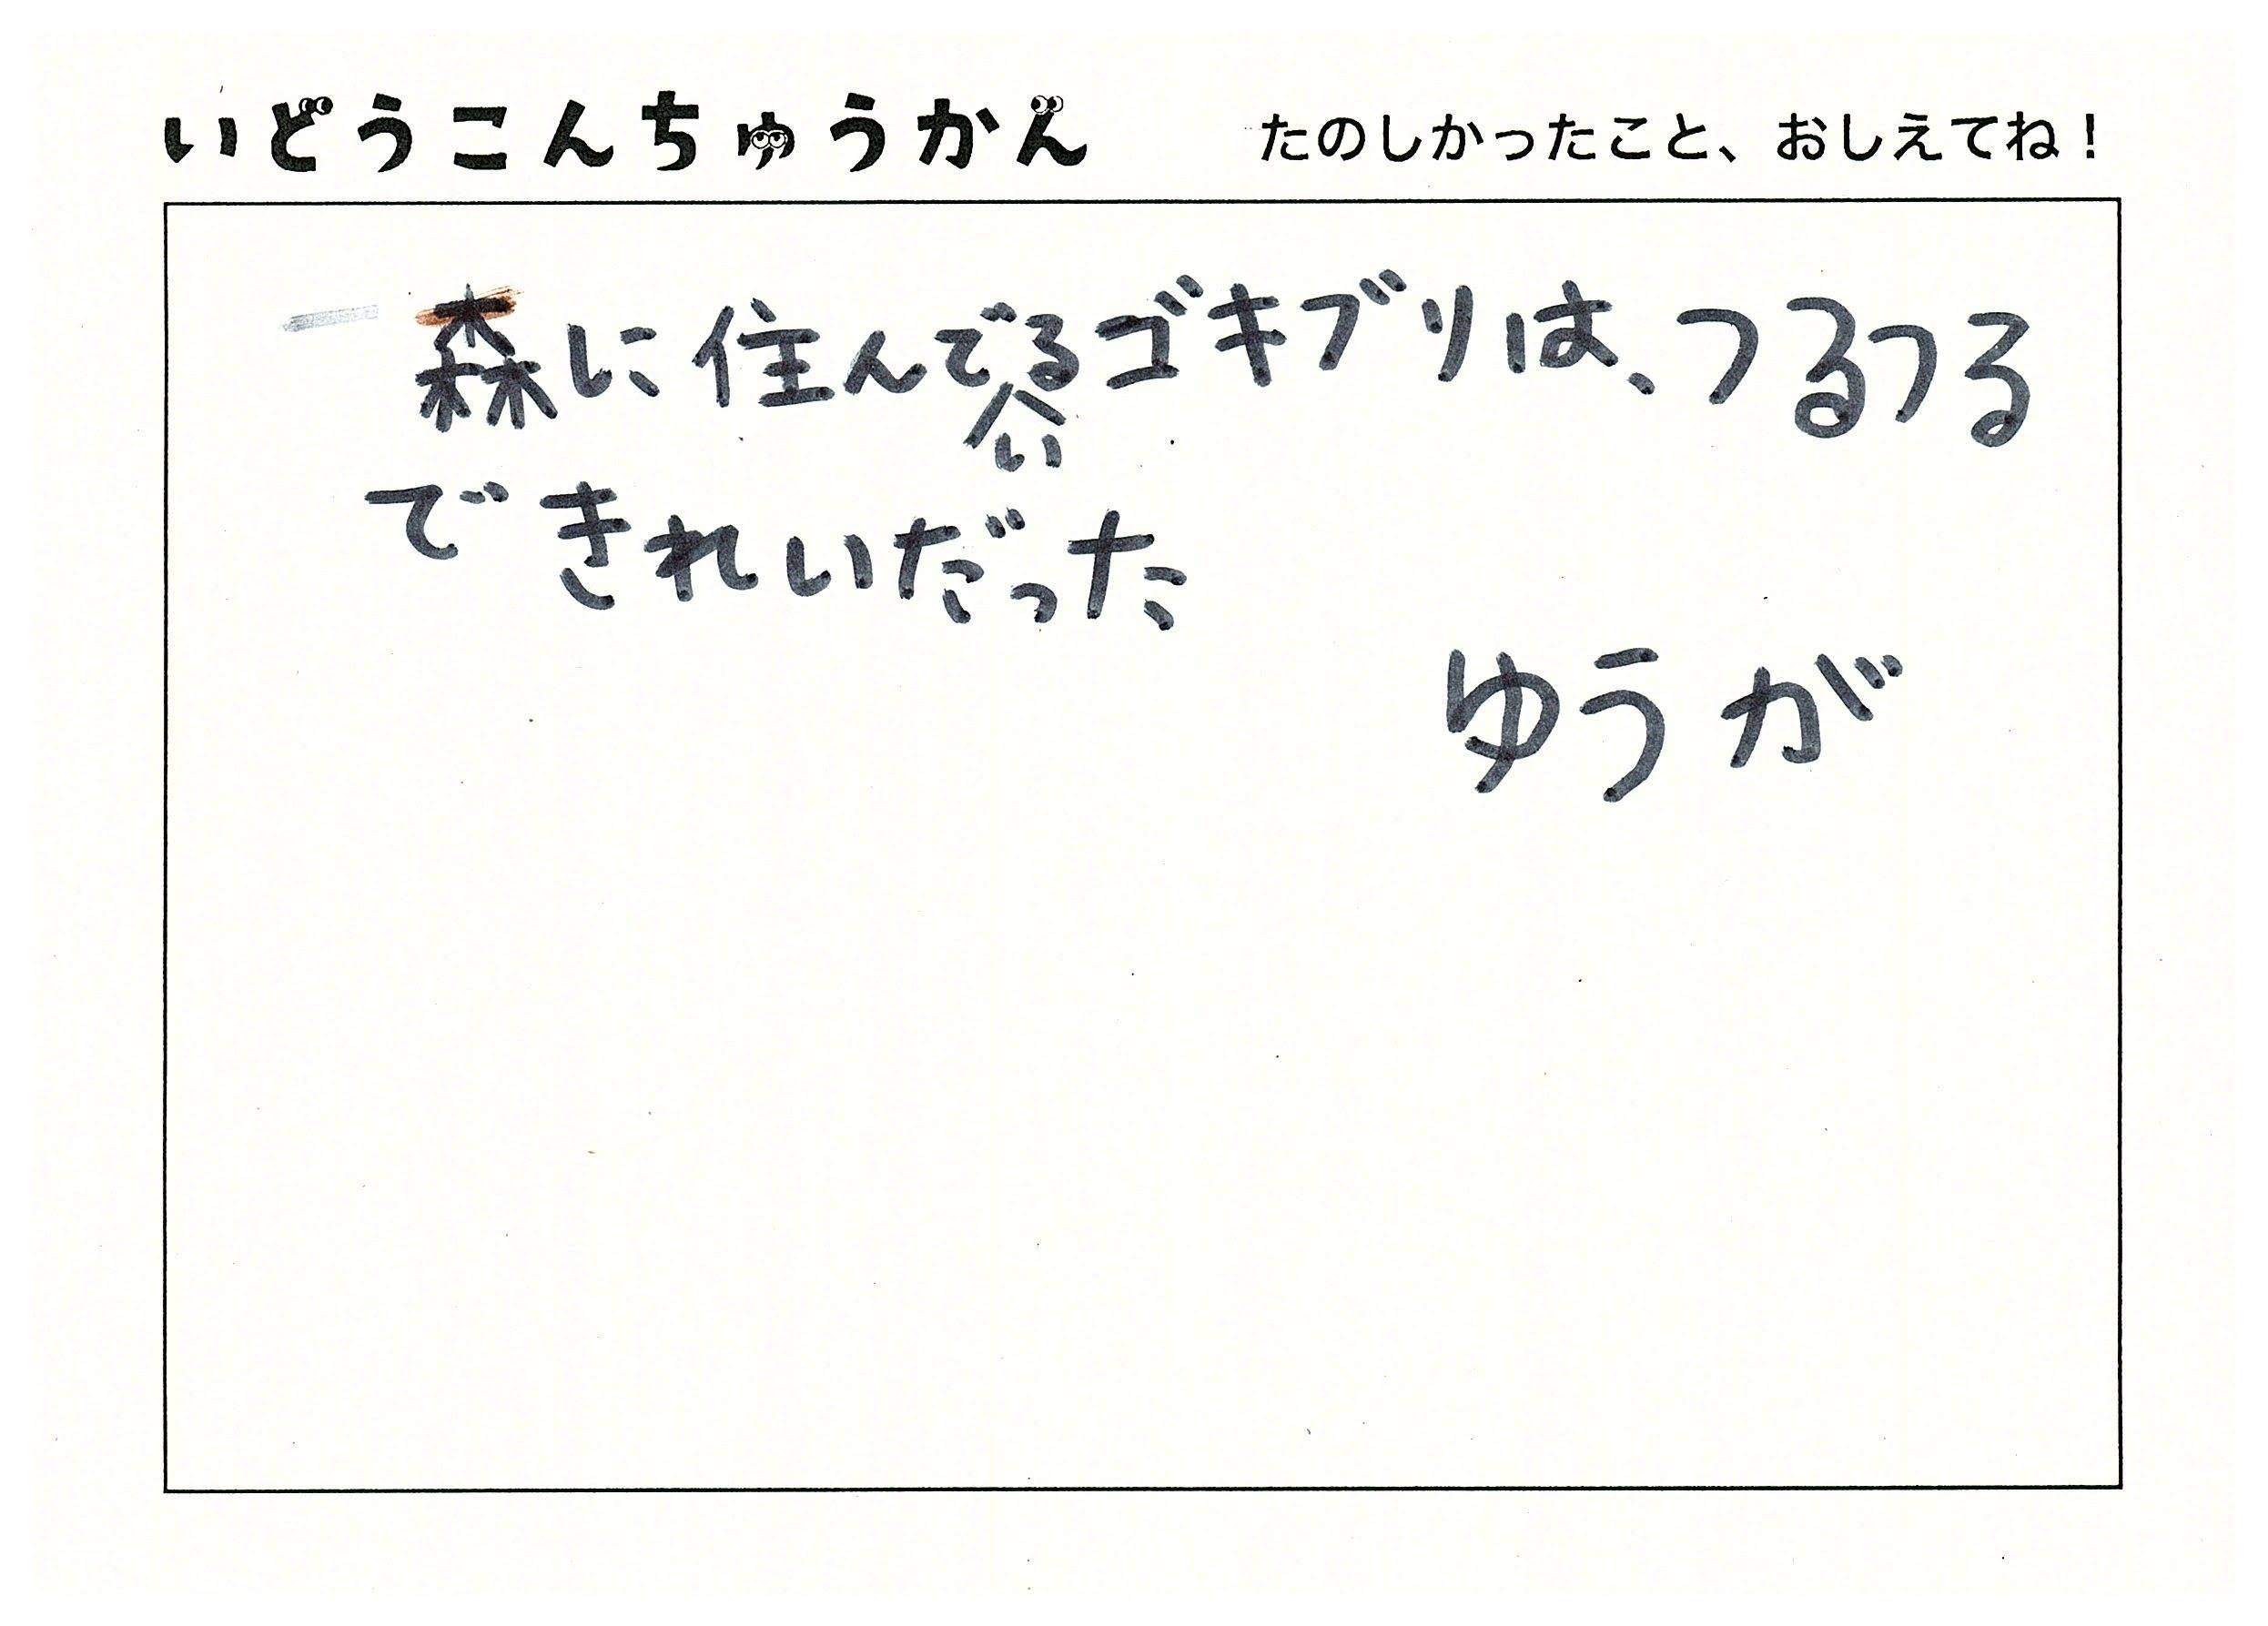 いどうこんちゅうかん たのしかったこと、おしえてね!
森に住んでいるゴキブリは、つるつる
できれいだった
ゆうが